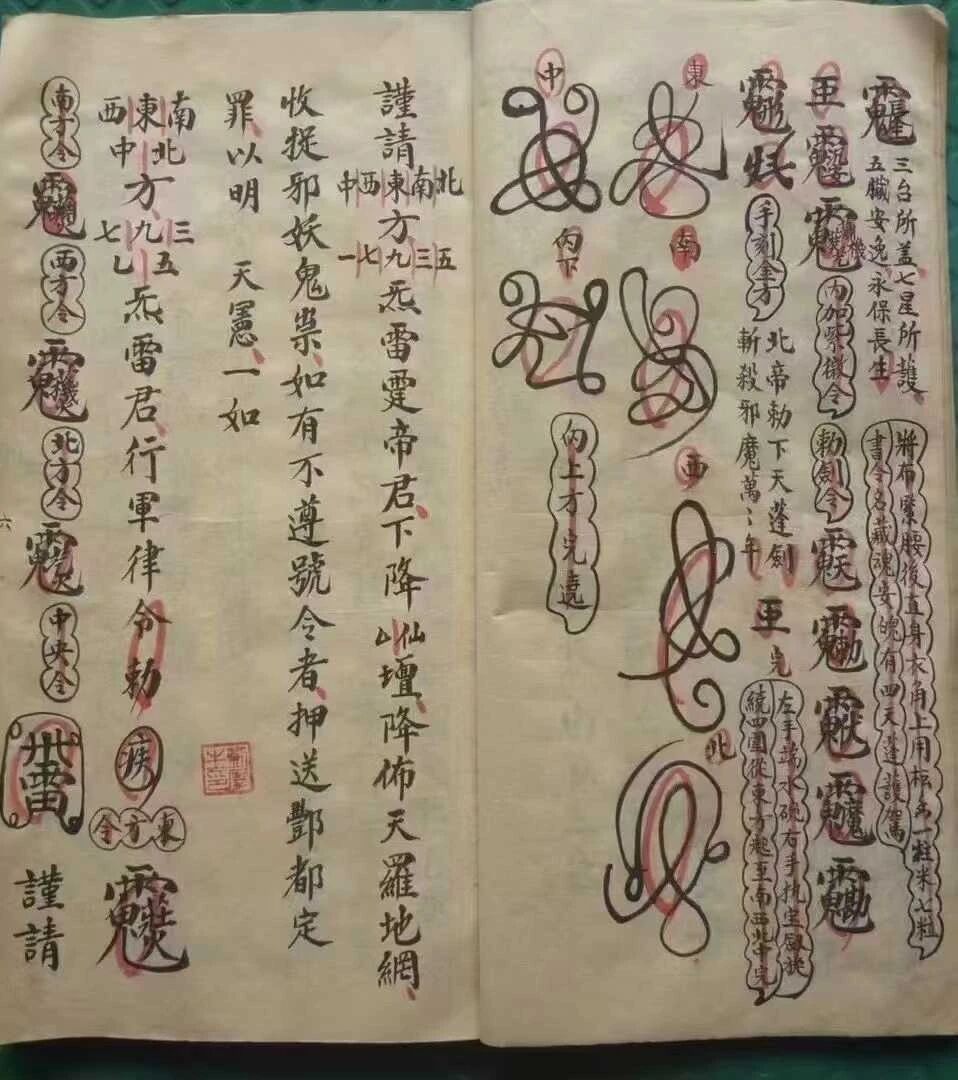 三台所蓋七星所護
五臟安逸永保長生
將布緊腰後直身衣角上用一柱米七粒
書令名藏魂安魄有四天蓬護駕
內加紫微令
勅劍令
手刻金方
北帝勅下天蓬劍
斬殺邪魔萬〻年
完
左手端水碗右手执宝劍旋
繞四圍從東方起至南西北中完
東
南
西
北
中
向下
向上方完遶
謹請
北南東西中
方
五三九七一
炁雷霆帝君下降
仙山
壇降佈天羅地網
收捉邪妖鬼祟如有不遵號令者押送酆都定
罪以明 天憲一如
南東西
北中
方
三九七
五乙
炁雷君行軍律令勅
東方令
南方令
西方令
北方令
中央令
謹請
六